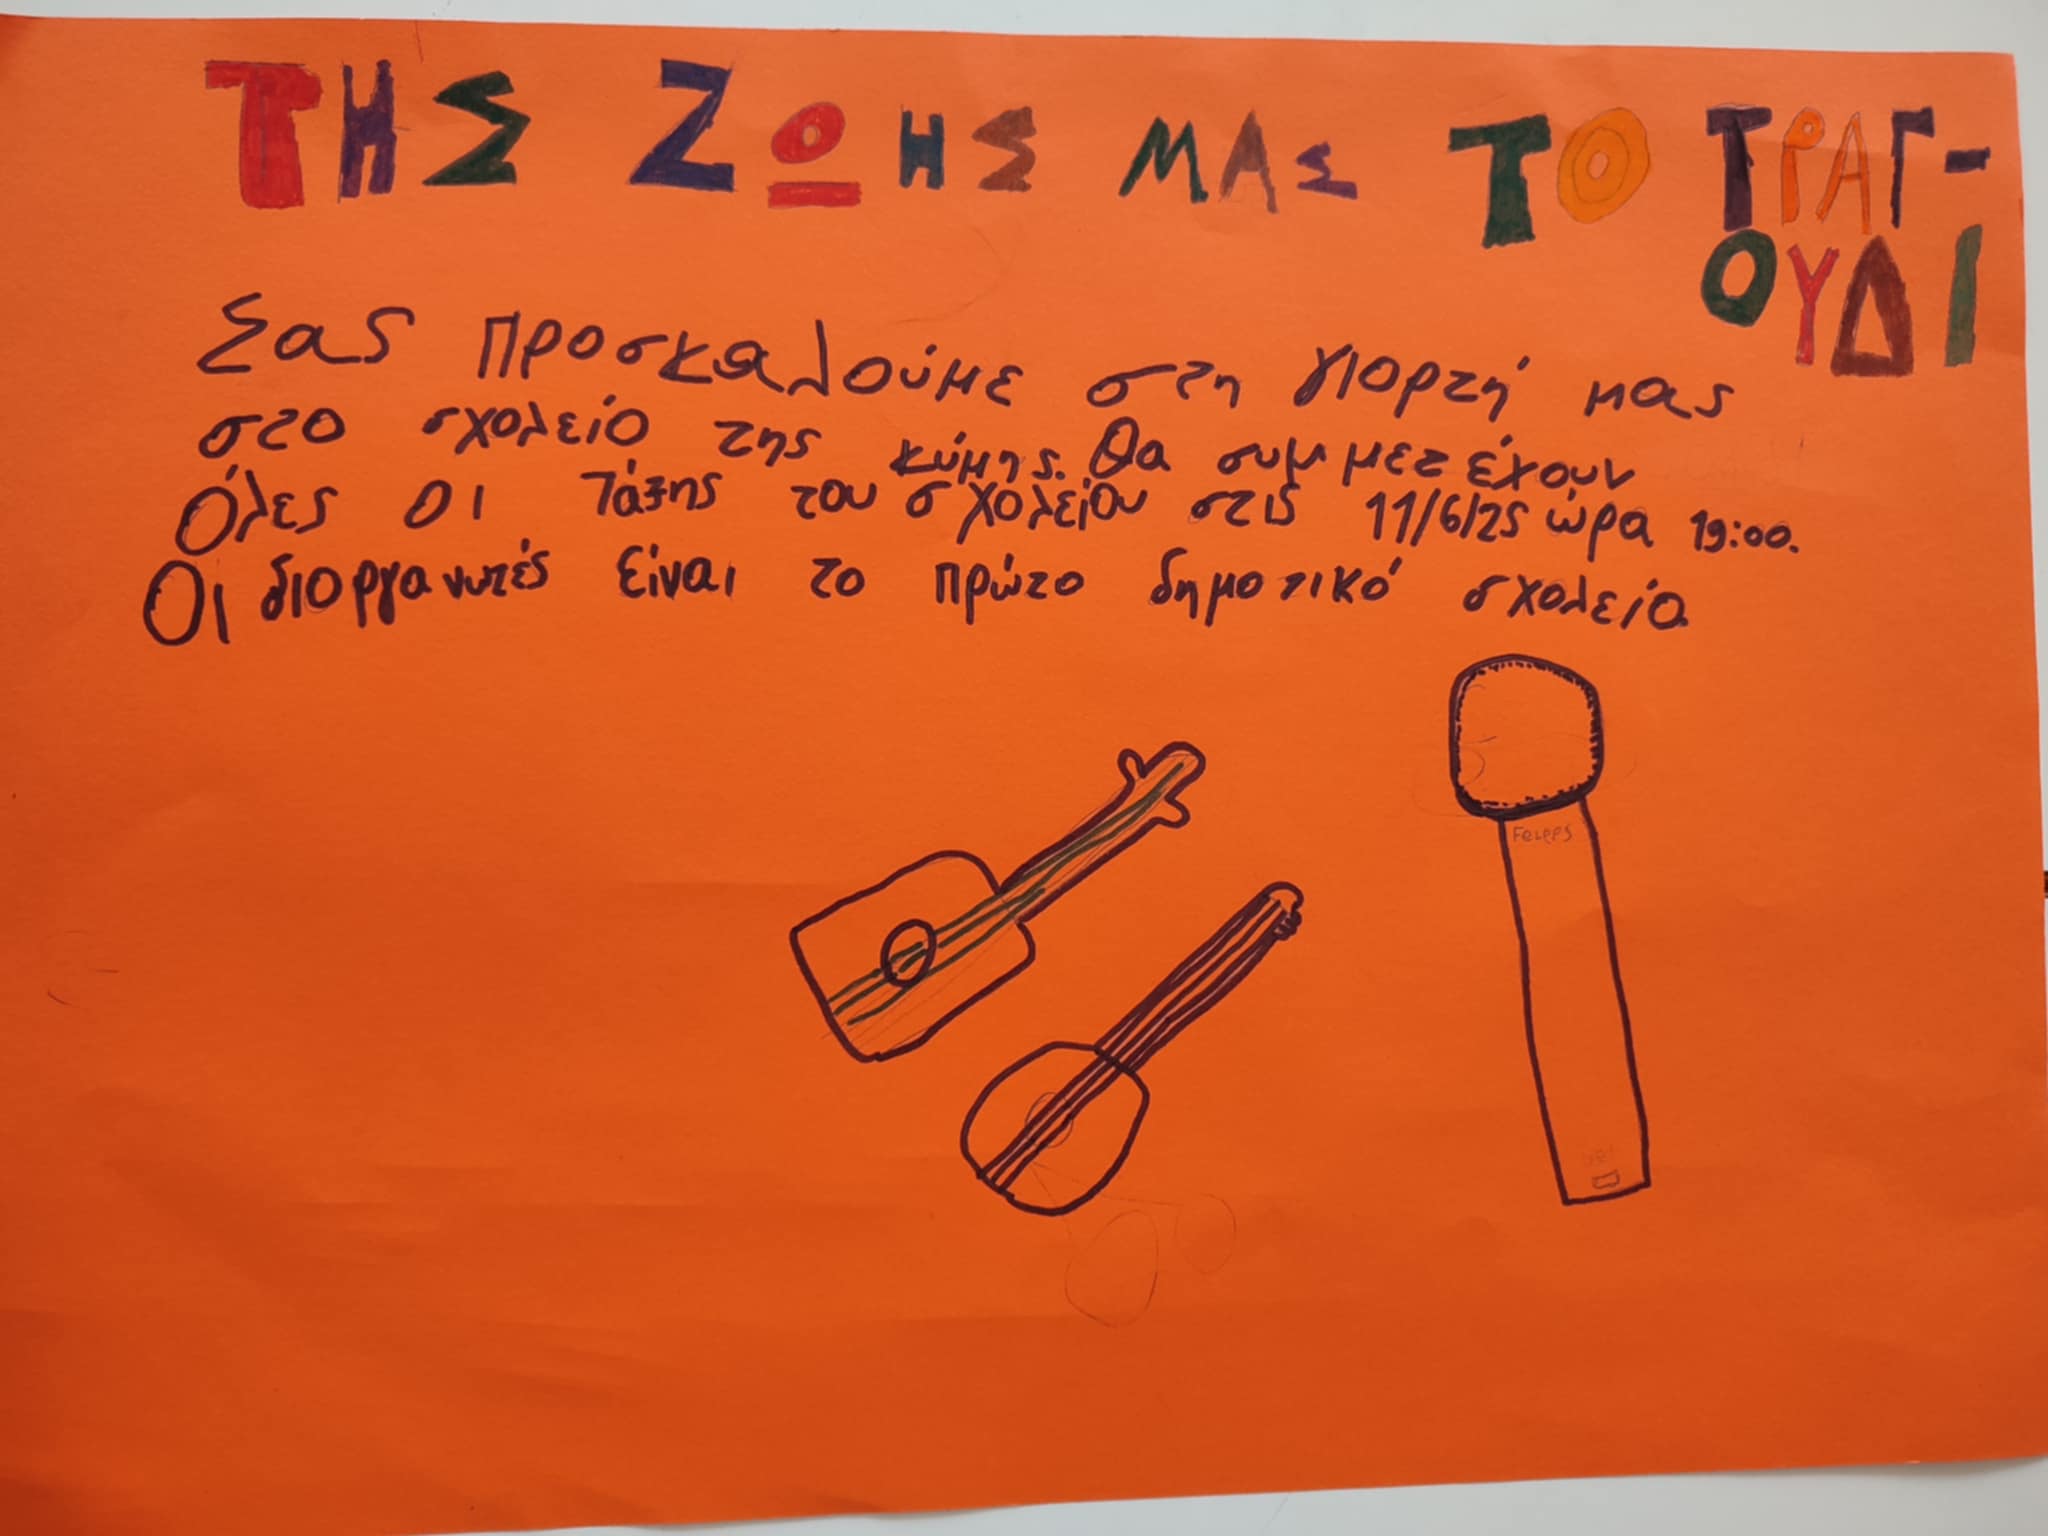 ΤΗΣ ΖΩΗΣ ΜΑΣ ΤΟ ΤΡΑΓ-
ΟΥΔΙ
Σας προσκαλούμε στη γιορτή μας
στο σχολείο της κύμης. Θα συμμετέχουν
Όλες οι τάξης του σχολείου στις 11/6/25 ώρα 19:00.
Οι διοργανωτές είναι το πρώτο δημοτικό σχολείο